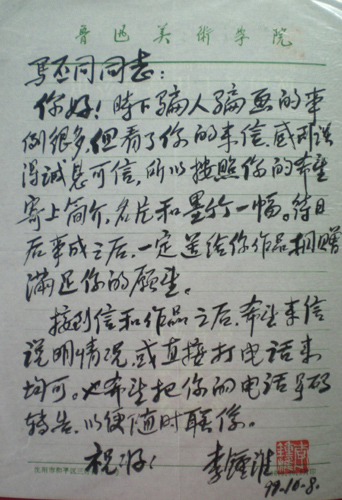 鲁迅美術学院
马丕同同志：
你好！时下骗人骗画的事
例很多，但看了你的来信，感到说
得诚恳可信，所以按照你的希望
寄上简介、名片和墨竹一幅。待日
后事成之后，一定送给你作品相赠
满足你的愿望。
接到信和作品之后，希望来信
说明情况，或直接打电话来
均可。也希望把你的电话号码
转告，以便随时联系。
祝好！
99.10.8.
沈阳市和平区三